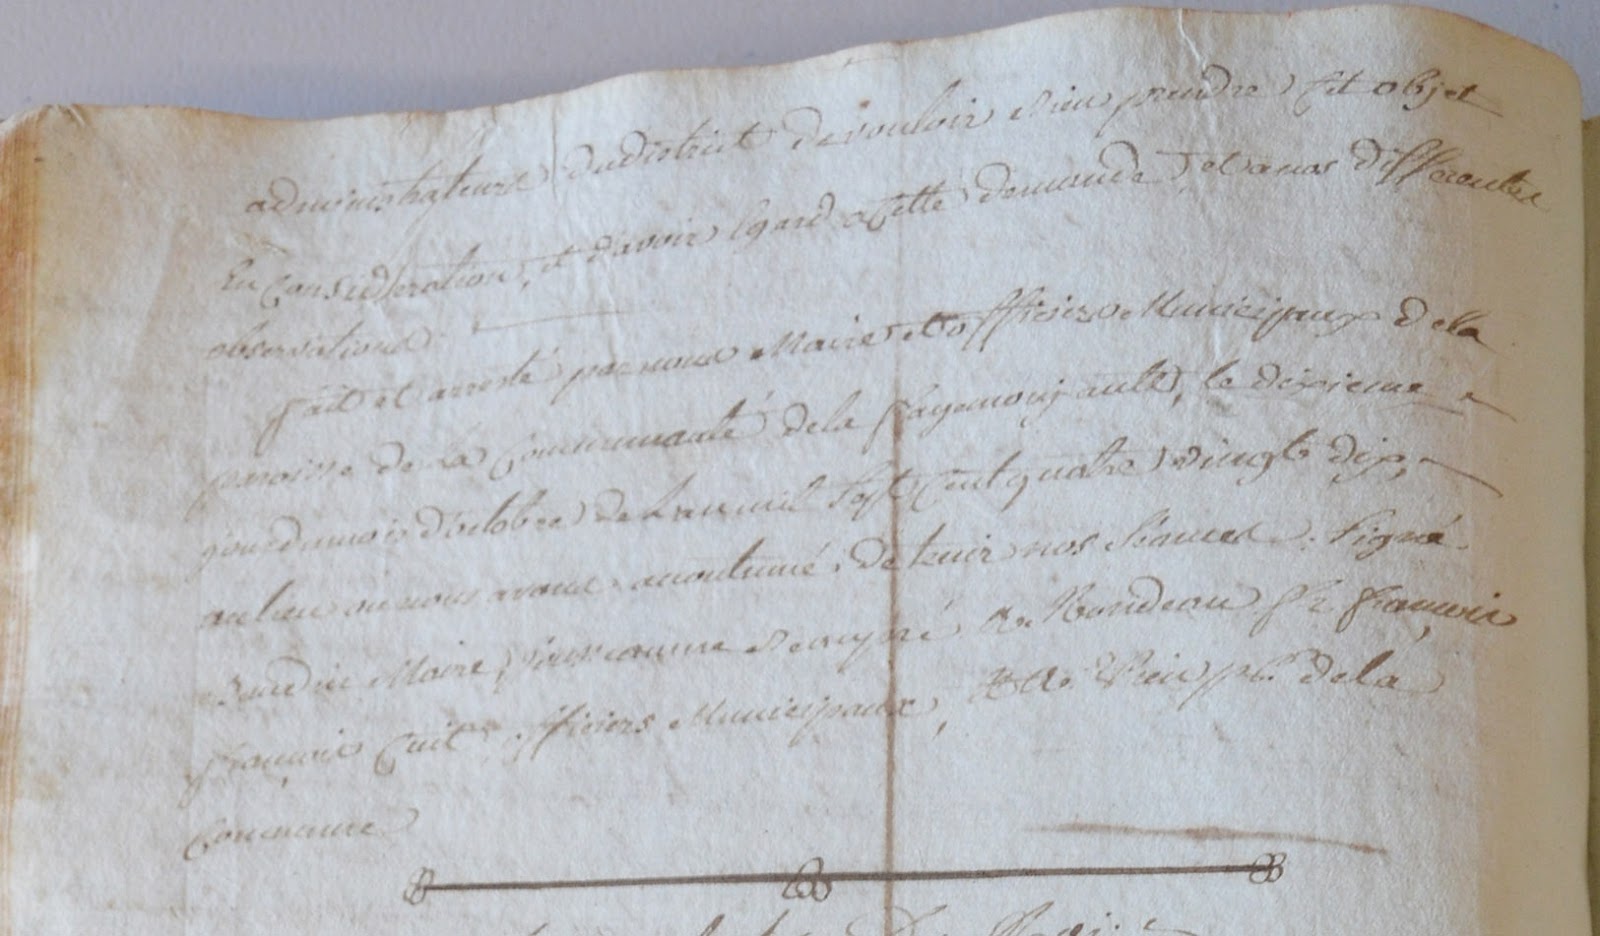 administrateurs dudistrict devouloir Bien prendre Cet objet
En Considération, et d'avoir Egard aCette demande, et anos différentes
observations
fait et aresté parnous Maire et officiers Municipaux dela
paroisse de la Communauté dela fayemonjault, le dixieme
jourdumois d'octobre de Lanmil Sept Cent quatre vingts dix,
aulieu ou nous avons acoutumé de tenir nos Séances. Signé
Baudin Maire, Rondeau françois
françois Cuit officiers Municipaux, Vien pr. dela
Commune